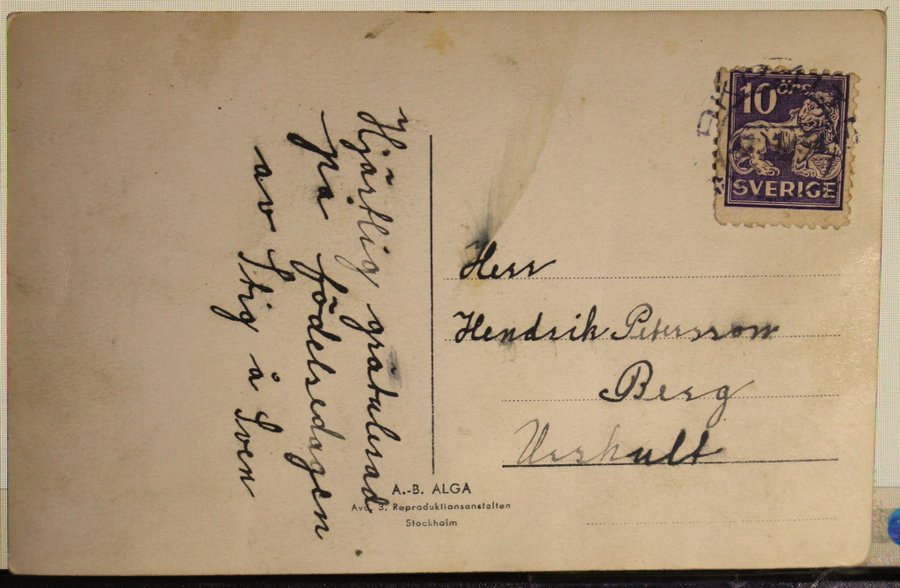 Hjärtlig gratulerad
på födelsedagen
av Stig å Sven
10 öre
SVERIGE
Herr
Hendrik Petersson
Berg
Urshult
A.-B. ALGA
Avd. 3. Reproduktionsanstalten
Stockholm